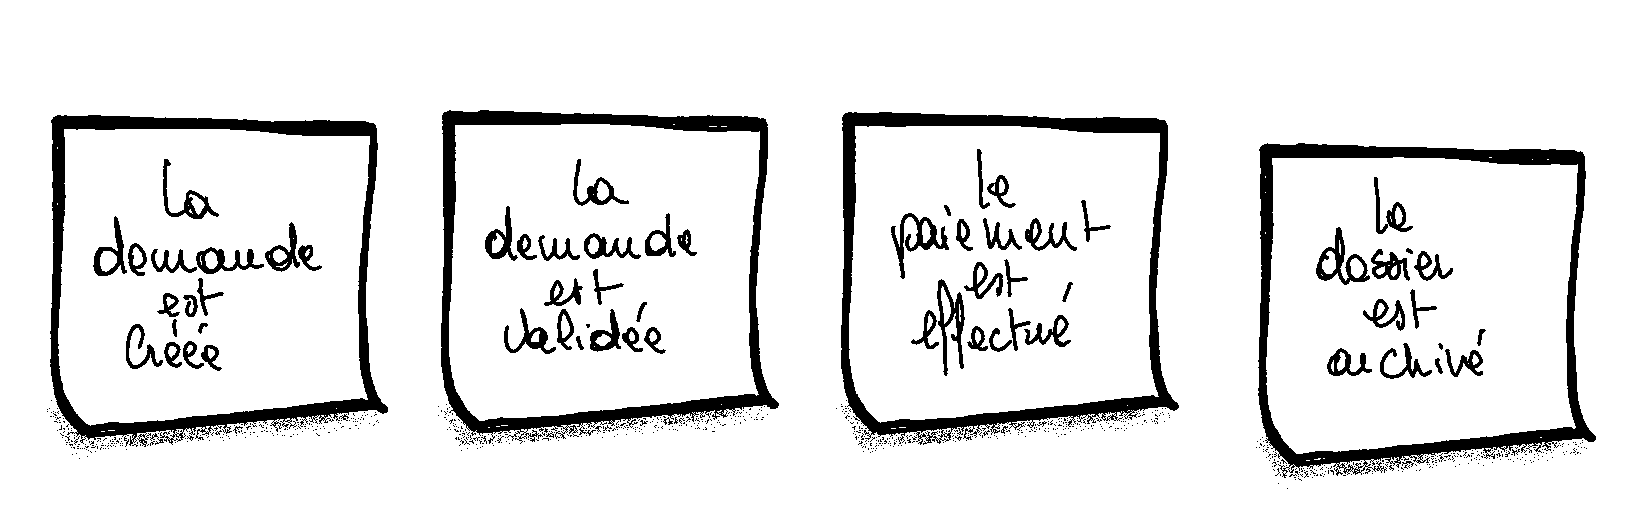 La
demande
est
créée
la
demande
est
validée
le
paiement
est
effectué
le
dossier
est
archivé